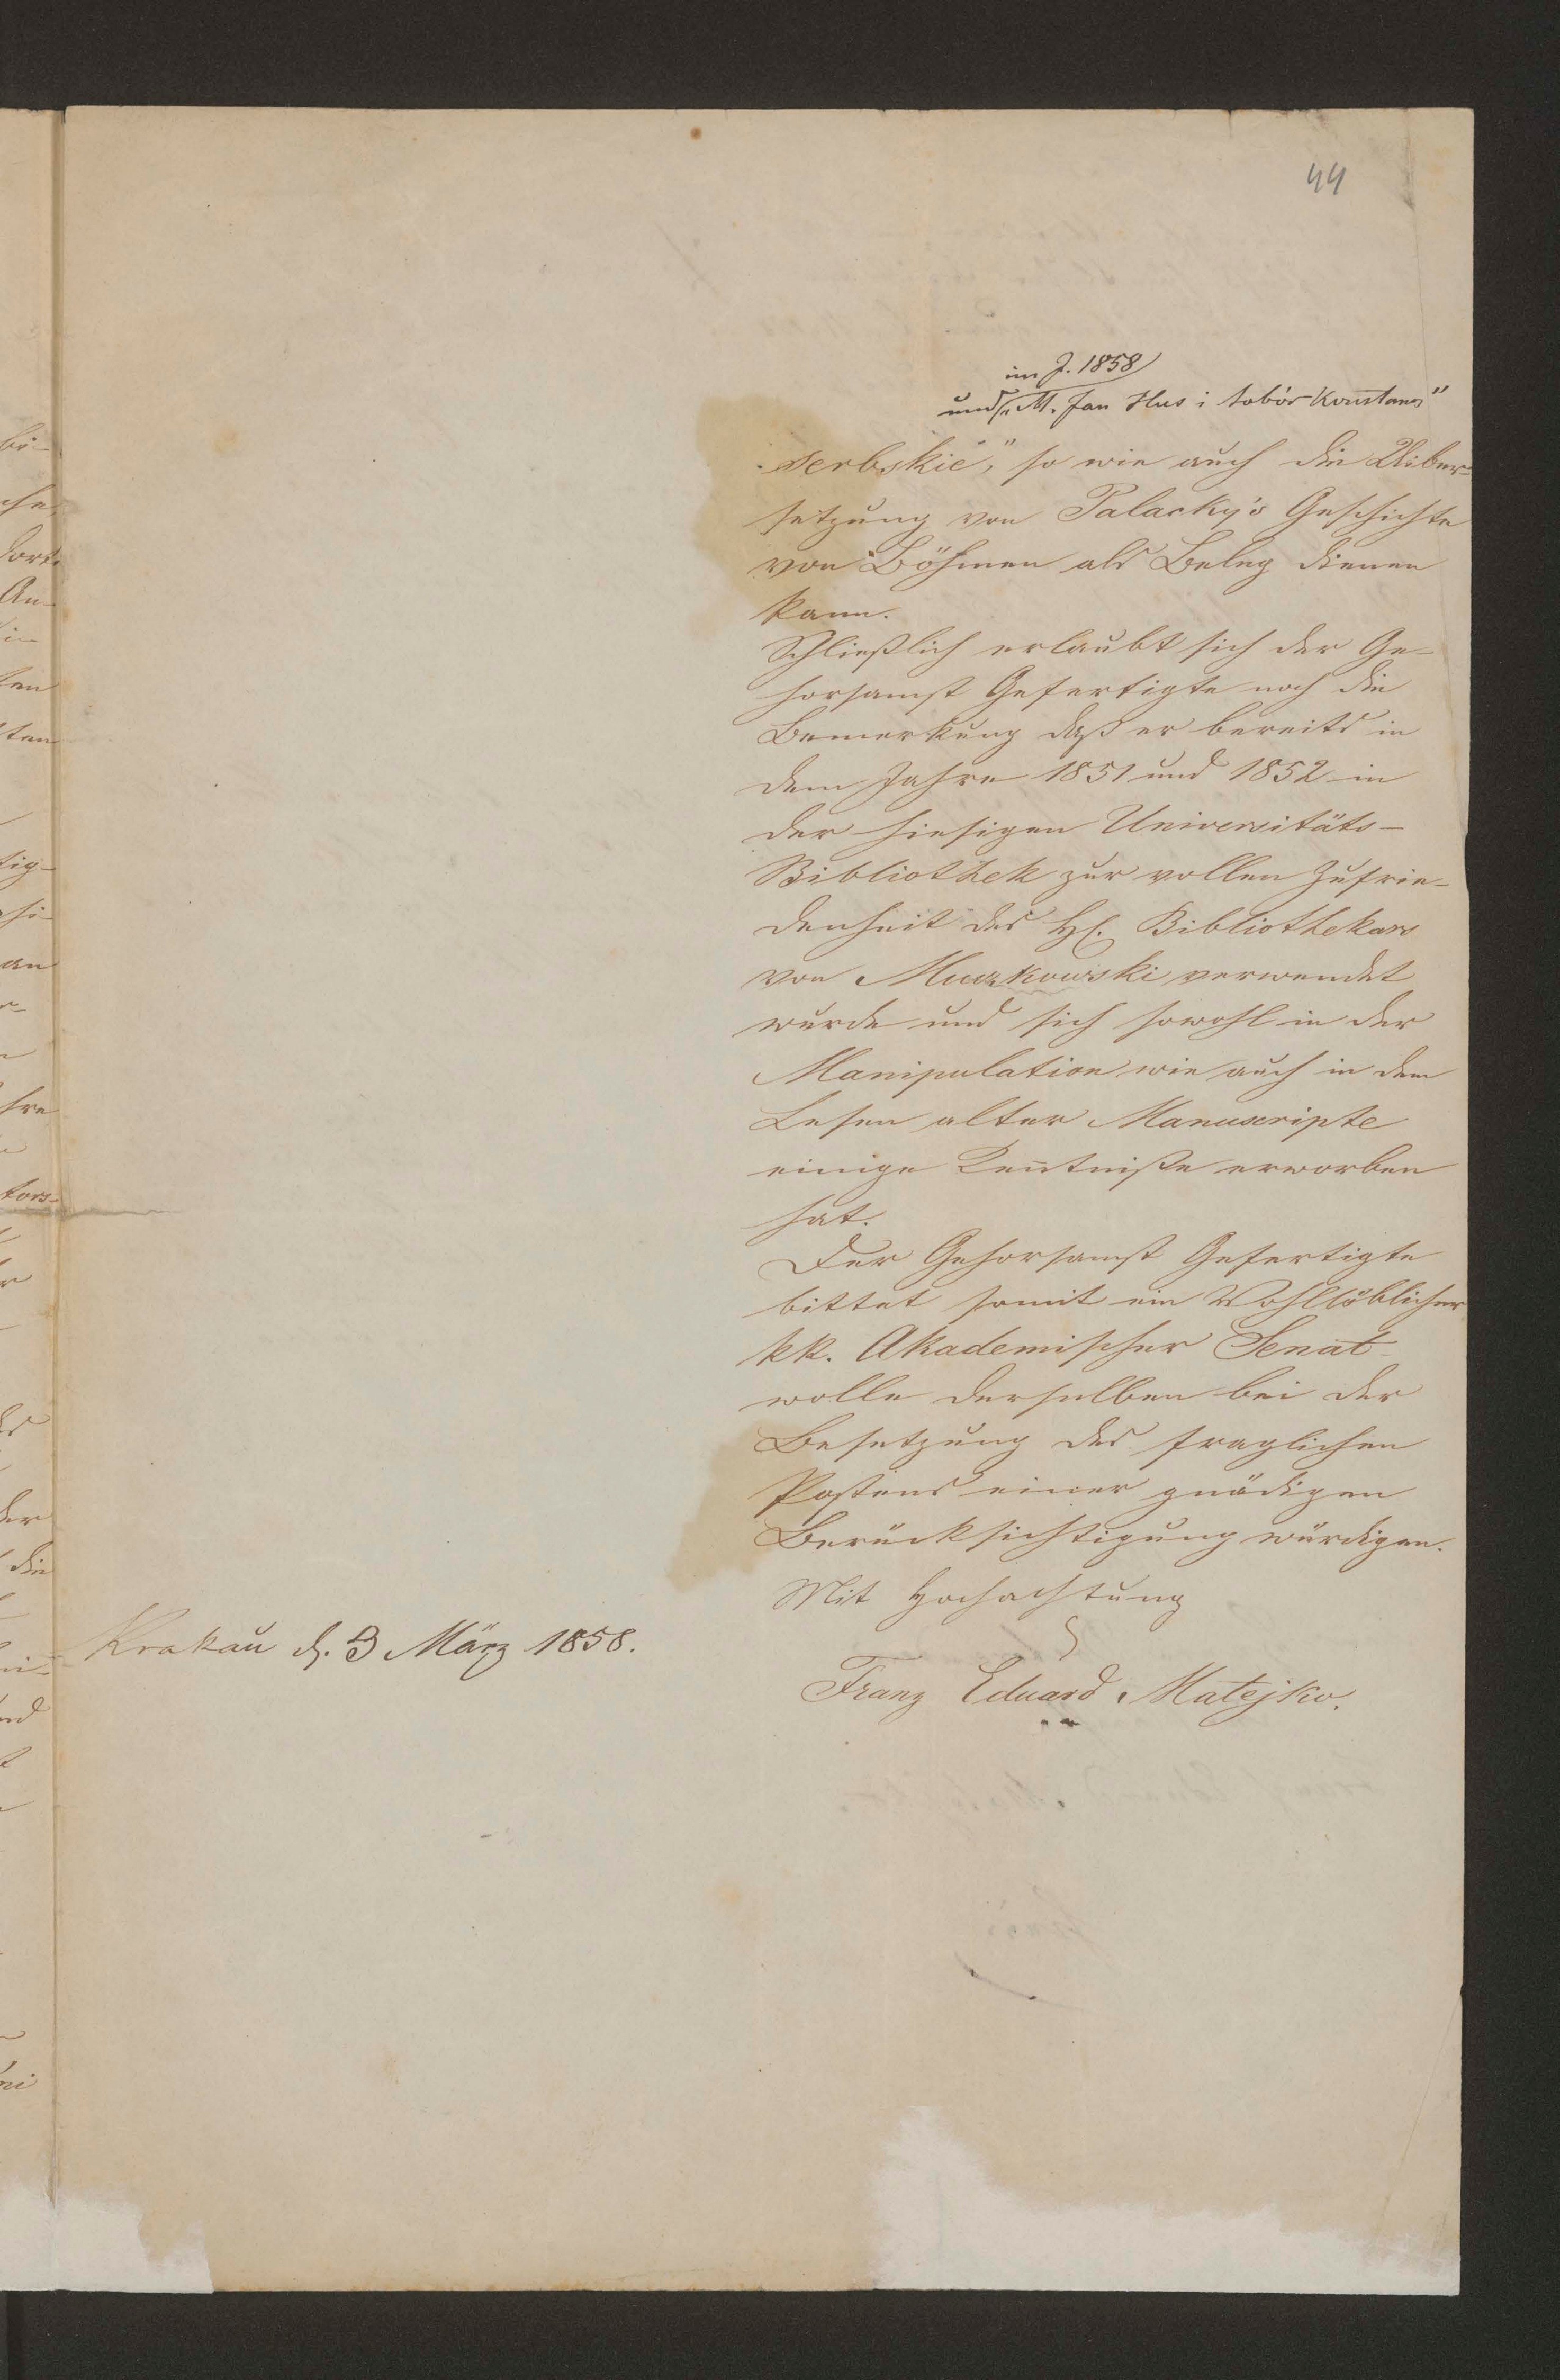 44
im J. 1858
und „M. Jan Hus i sobór Konstanc"
serbskie", so wie auch die Uiber-
setzung von Palacky's Geschichte
von Böhmen als Beleg dienen
kann.
Schließlich erlaubt sich der Ge-
horsamst Gefertigte noch die
Bemerkung daß er bereits in
dem Jahre 1851 und 1852 in
der hiesigen Universitäts-
Bibliothek zur vollen Zufrie-
denheit des H. Bibliothekars
von Muczkowski verwendet
wurde und sich sowohl in der
Manipulation wie auch in dem
Lesen alter Manuscripte
einige Kentniße erworben
hat.
Der Gehorsamst Gefertigte
bittet somit ein Wohllöblicher
kk. Akademischer Senat
wolle derselben bei der
Besetzung des fraglichen
Postens einer gnädigen
Berücksichtigung würdigen.
Mit Hochachtung
Krakau d. 3 März 1858.
Franz Eduard Matejko.